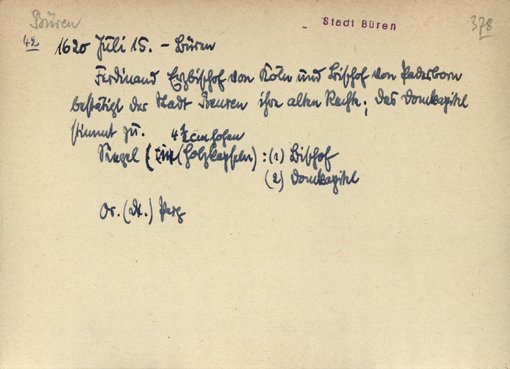 Büren
Stadt Büren
378
42
1620 Juli 15. - Büren
Ferdinand Erzbischof von Köln und Bischof von Paderborn
bestätigt der Stadt Beuren ihre alten Rechte; das Domkapitel
stimmt zu.
Siegel (Holzkapseln) : (1) Bischof
(2) Domkapitel
Or. (dt.) Perg